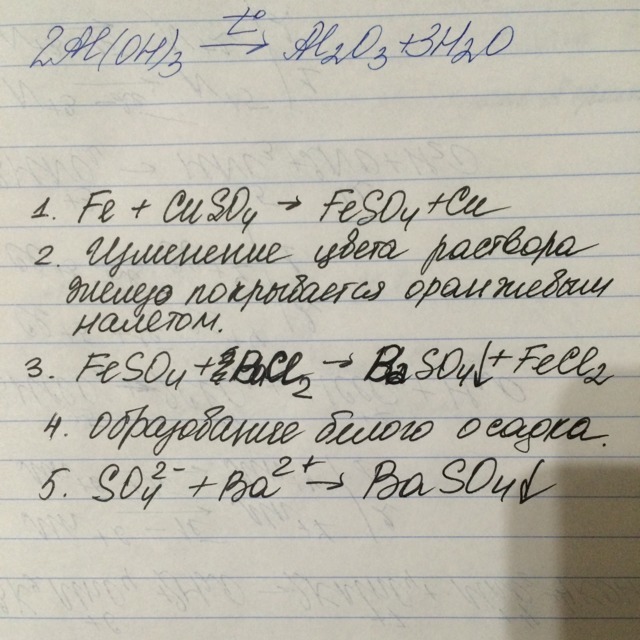 2Al(OH)₃ →t° Al₂O₃+3H₂O
1. Fe + CuSO₄ → FeSO₄+Cu
2. Изменение цвета раствора
железо покрывается оранжевым
налетом.
3. FeSO₄+BaCl₂ → BaSO₄↓+FeCl₂
4. Образование белого осадка.
5. SO₄²⁻ + Ba²⁺ → BaSO₄↓